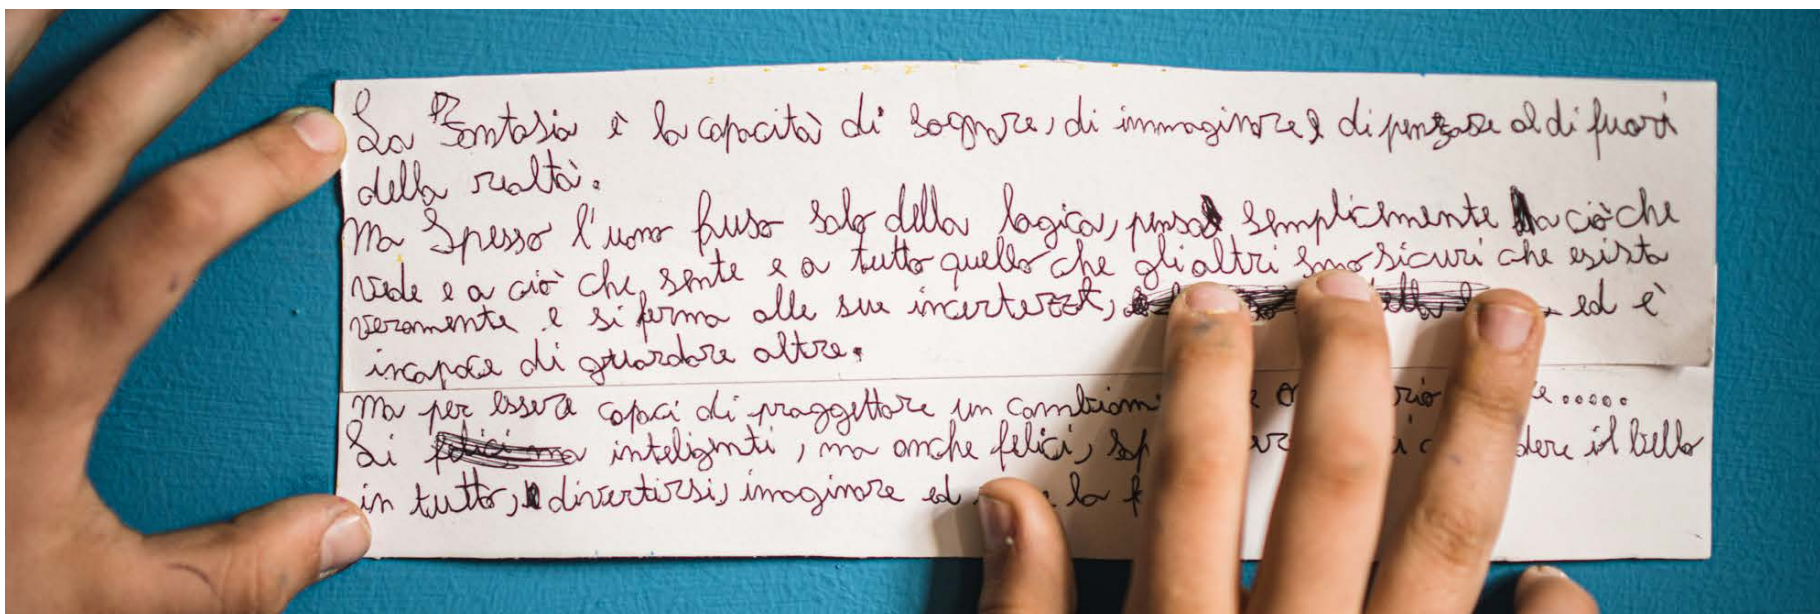 La Fantasia è la capacità di sognare, di immaginare e di penzare al di fuori
della realtà.
Ma Spesso l'uomo fruso solo della logica, pensa semplicemente a ciò che
vede e a ciò che sente e a tutto quello che gli altri sono sicuri che esista
veramente e si ferma alle sue incertezze, ed è
incapace di guardare oltre.
Ma per essere capaci di proggettare un
Si inteligenti, ma anche felici, il bello
in tutto, divertirsi, imaginare ed la